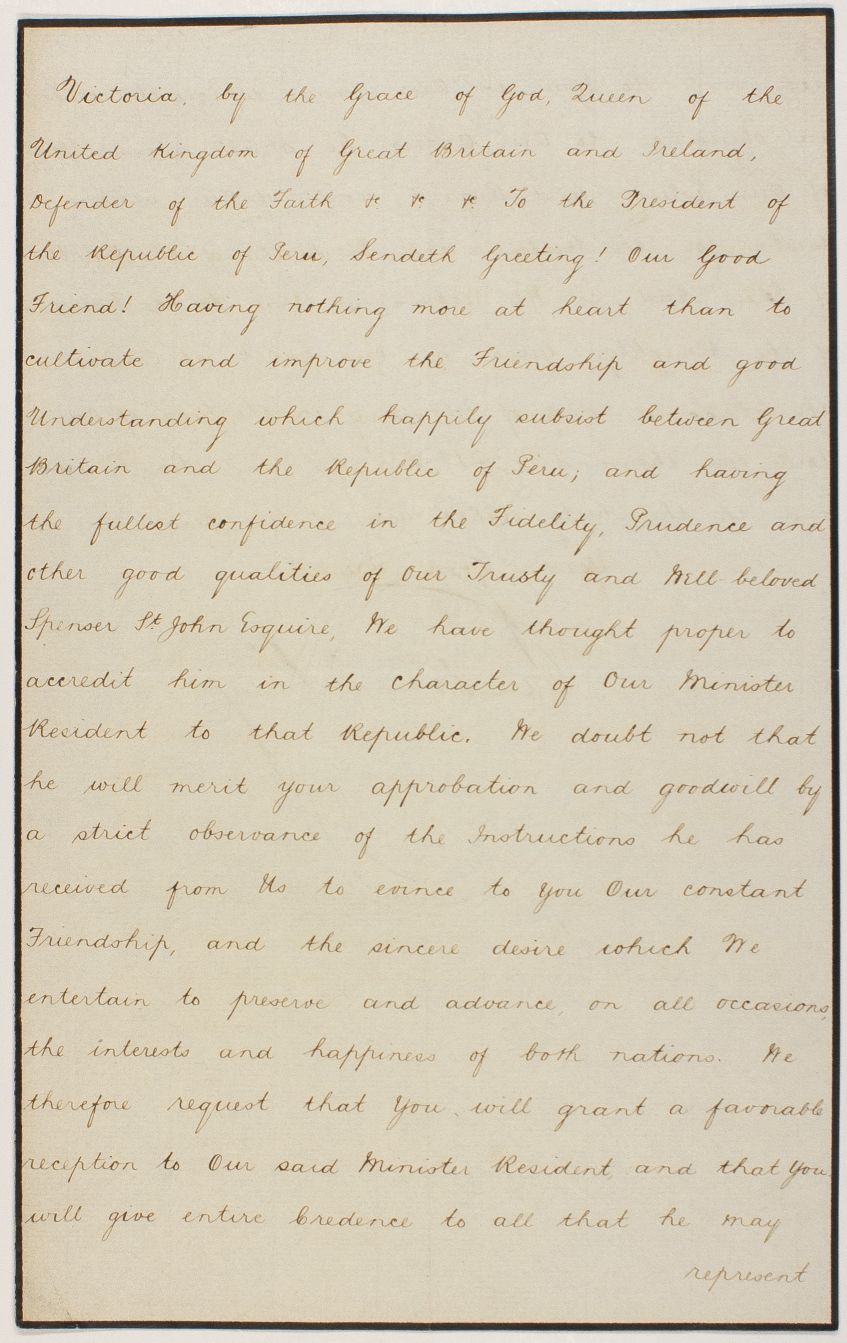 Victoria, by the Grace of God, Queen of the
United Kingdom of Great Britain and Ireland,
Defender of the Faith &c &c &c. To the President of
the Republic of Peru, Sendeth Greeting! Our Good
Friend! Having nothing more at heart than to
cultivate and improve the Friendship and good
Understanding which happily subsist between Great
Britain and the Republic of Peru; and having
the fullest confidence in the Fidelity, Prudence and
other good qualities of Our Trusty and Well-beloved
Spenser St. John Esquire, We have thought proper to
accredit him in the character of Our Minister
Resident to that Republic. We doubt not that
he will merit your approbation and goodwill by
a strict observance of the Instructions he has
received from Us to evince to You Our constant
Friendship, and the sincere desire which We
entertain to preserve and advance, on all occasions,
the interests and happiness of both nations. We
therefore request that You will grant a favorable
reception to Our said Minister Resident, and that You
will give entire Credence to all that he may
represent